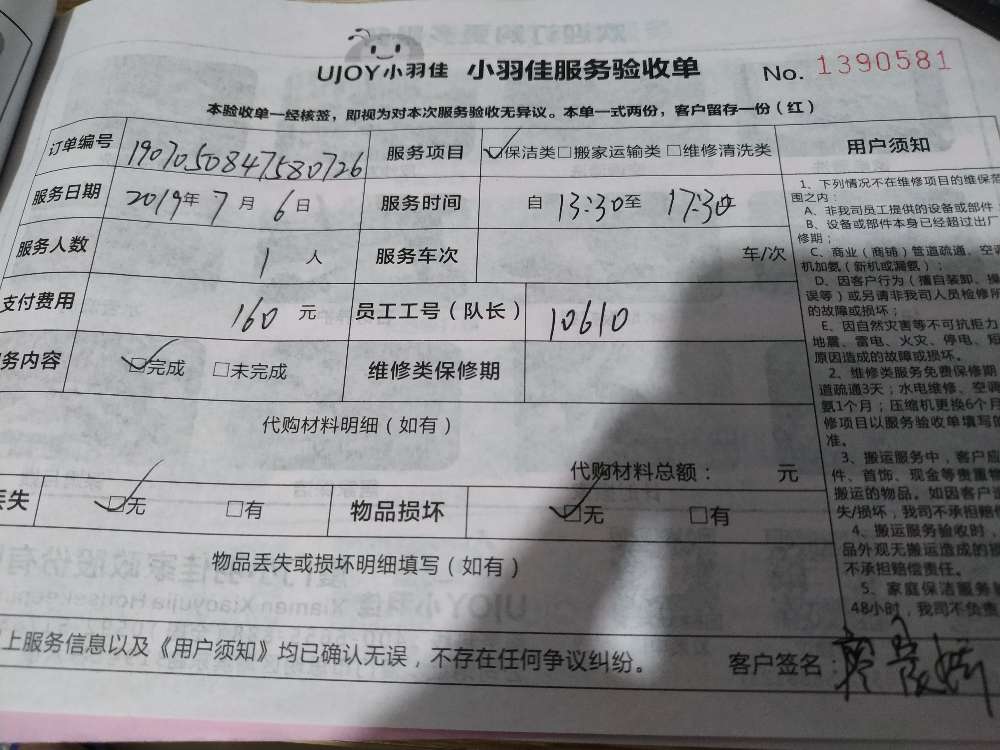 UJOY小羽佳 小羽佳服务验收单 No. 1390581
本验收单一经核签，即视为对本次服务验收无异议。本单一式两份，客户留存一份（红）
订单编号 1907050847580726 服务项目 ☑保洁类□搬家运输类□维修清洗类
服务日期 2019年7月6日 服务时间 自13:30至17:30
服务人数 1人 服务车次 车/次
支付费用 160元 员工工号（队长） 10610
务内容 ☑完成 □未完成 维修类保修期
代购材料明细（如有）
代购材料总额： 元
丢失 ☑无 □有 物品损坏 ☑无 □有
物品丢失或损坏明细填写（如有）
上服务信息以及《用户须知》均已确认无误，不存在任何争议纠纷。 客户签名：
用户须知
1、下列情况不在维修项目的维保范
围之内：
A、非我司员工提供的设备或部件
B、设备或部件本身已经超过出厂
修期；
C、商业（商铺）管道疏通、空
机加氨（新机或漏氨）；
D、因客户行为（擅自装卸、操
误等）或另请非我司人员检修
的故障或损坏；
E、因自然灾害等不可抗拒力
地震、雷电、火灾、停电、短
原因造成的故障或损坏。
2、维修类服务免费保修期
道疏通3天；水电维修、空调
氨1个月；压缩机更换6个月
修项目以服务验收单填写
准。
3、搬运服务中，客户应
件、首饰、现金等贵重物
搬运的物品。如因客户
失/损坏，我司不承担赔
4、搬运服务验收时，
品外观无搬运造成的损
不承担赔偿责任。
5、家庭保洁服务
48小时，我司不负责